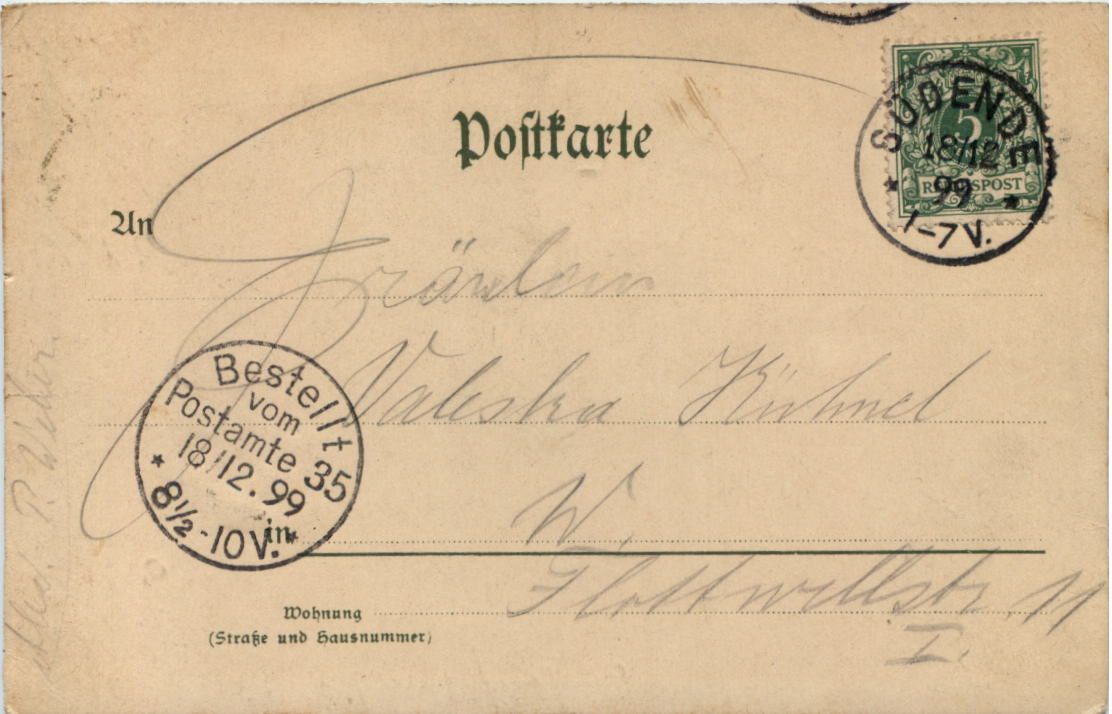 Postkarte
SÜDENDE
18/12
99
1-7 V.
5
REICHSPOST
An
Fräulein
Valeska Kühnel
Bestellt
vom
Postamte 35
18/12.99
8½-10V.
in
W.
Wohnung
(Straße und Hausnummer)
Flottwellstr. 11
I.
P. Weber